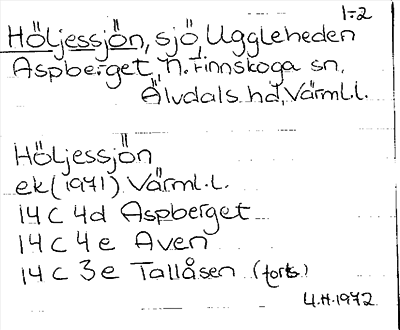 1-2
Höljessjön, sjö, Uggleheden
Aspberget, N. Finnskoga sn,
Älvdals hd, Värml.l.
Höljessjön
ek (1971) Värml.l.
14 C 4d Aspberget
14 C 4e Aven
14 C 3e Tallåsen (forts.)
U.H. 1972